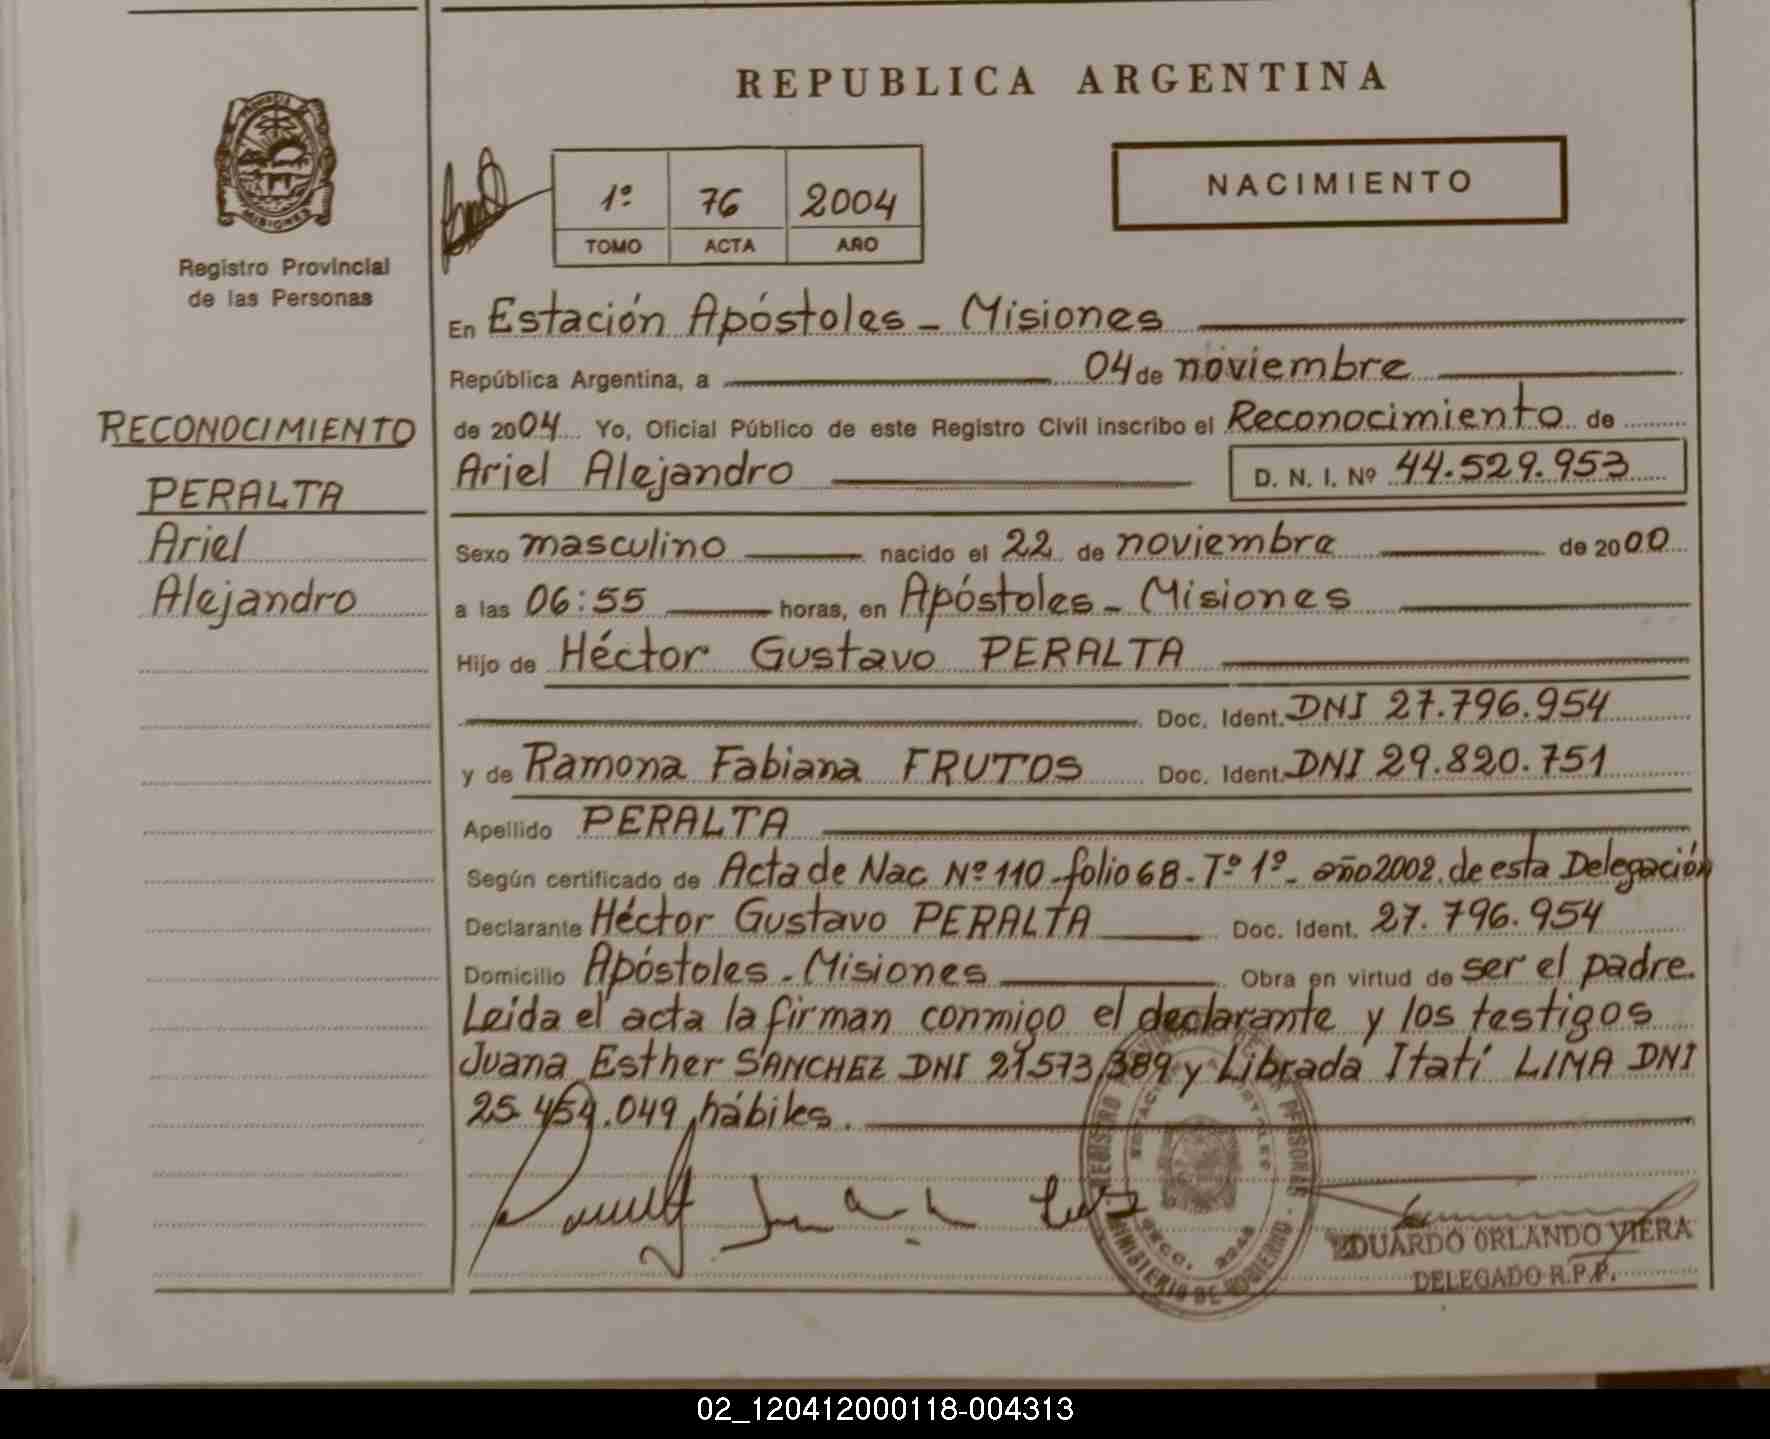 REPUBLICA ARGENTINA
NACIMIENTO
1º 76 2004
TOMO ACTA AÑO
MISIONES
Registro Provincial
de las Personas
En Estación Apóstoles - Misiones
República Argentina, a 04 de noviembre
de 2004 Yo, Oficial Público de este Registro Civil inscribo el Reconocimiento de
Ariel Alejandro D. N. I. Nº 44.529.953
RECONOCIMIENTO
PERALTA
Ariel
Alejandro
Sexo masculino nacido el 22 de noviembre de 2000
a las 06:55 horas, en Apóstoles - Misiones
Hijo de Héctor Gustavo PERALTA
Doc. Ident. DNI 27.796.954
y de Ramona Fabiana FRUTOS Doc. Ident. DNI 29.820.751
Apellido PERALTA
Según certificado de Acta de Nac Nº 110 - folio 68 - Tº 1º - año 2002. de esta Delegación
Declarante Héctor Gustavo PERALTA Doc. Ident. 27.796.954
Domicilio Apóstoles - Misiones Obra en virtud de ser el padre.
Leída el acta la firman conmigo el declarante y los testigos
Juana Esther SANCHEZ DNI 21.573.389 y Librada Itatí LIMA DNI
25.454.049, hábiles.
REGISTRO PERSONAS
MINISTERIO DE GOBIERNO
EDUARDO ORLANDO VIERA
DELEGADO R.P.P.
02_120412000118-004313